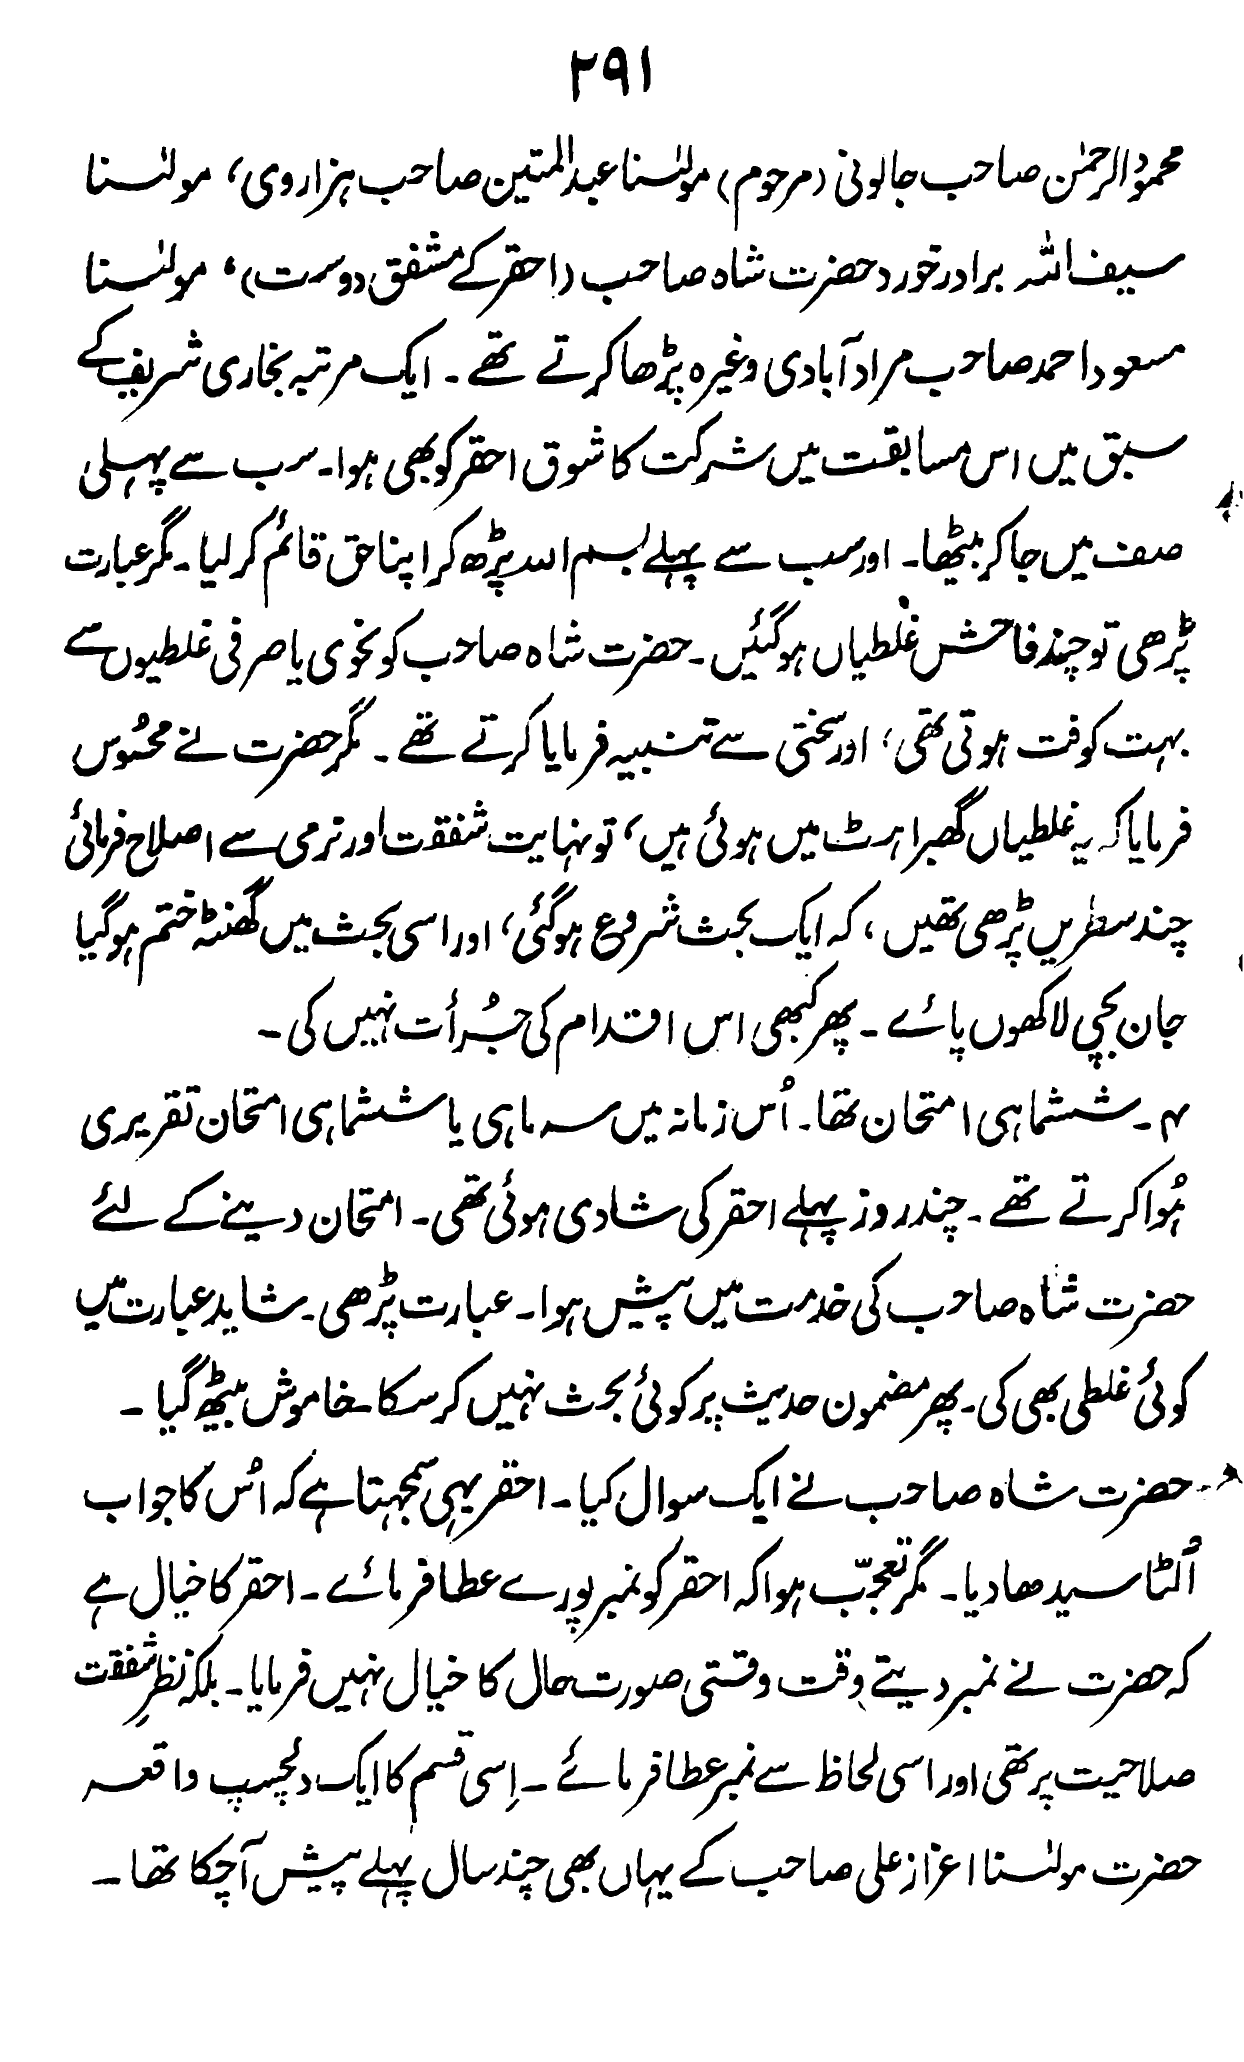 ۲۹۱
محمود الرحمٰن صاحب جالونی (مرحوم) مولٰنا عبد المتین صاحب ہزاروی، مولٰنا
سیف اللہ برادر خورد حضرت شاہ صاحب (احقر کے مشفق دوست)، مولٰنا
مسعود احمد صاحب مراد آبادی وغیرہ پڑھا کرتے تھے ۔ ایک مرتبہ بخاری شریف کے
سبق میں اس مسابقت میں شرکت کا شوق احقر کو بھی ہوا۔ سب سے پہلی
صف میں جا کر بیٹھا۔ اور سب سے پہلے بسم اللہ پڑھ کر اپنا حق قائم کر لیا۔ مگر عبارت
پڑھی تو چند فاحش غلطیاں ہو گئیں۔ حضرت شاہ صاحب کو نحوی یا صرفی غلطیوں سے
بہت کوفت ہوتی تھی، اور سختی سے تنبیہ فرمایا کرتے تھے ۔ مگر حضرت نے محسُوس
فرمایا کہ یہ غلطیاں گھبراہٹ میں ہوئی ہیں، تو نہایت شفقت اور نرمی سے اصلاح فرمائی
چند سطریں پڑھی تھیں، کہ ایک بحث شروع ہو گئی، اور اسی بحث میں گھنٹہ ختم ہو گیا
جان بچی لاکھوں پائے ۔ پھر کبھی اس اقدام کی جُرأت نہیں کی ۔
۴ ۔ ششماہی امتحان تھا۔ اُس زمانہ میں سہ ماہی یا ششماہی امتحان تقریری
ہُوا کرتے تھے ۔ چند روز پہلے احقر کی شادی ہوئی تھی۔ امتحان دینے کے لئے
حضرت شاہ صاحب کی خدمت میں پیش ہوا۔ عبارت پڑھی۔ شاید عبارت میں
کوئی غلطی بھی کی۔ پھر مضمون حدیث پر کوئی بحث نہیں کر سکا۔ خاموش بیٹھ گیا ۔
حضرت شاہ صاحب نے ایک سوال کیا۔ احقر یہی سمجہتا ہے کہ اُس کا جواب
اُلٹا سیدھا دیا ۔ مگر تعجّب ہوا کہ احقر کو نمبر پورے عطا فرمائے ۔ احقر کا خیال ہے
کہ حضرت نے نمبر دیتے وقت وقتی صورت حال کا خیال نہیں فرمایا۔ بلکہ نظرِ شفقت
صلاحیت پر تھی اور اسی لحاظ سے نمبر عطا فرمائے ۔ اِسی قسم کا ایک دلچسپ واقعہ
حضرت مولٰنا اعزاز علی صاحب کے یہاں بھی چند سال پہلے پیش آ چکا تھا ۔